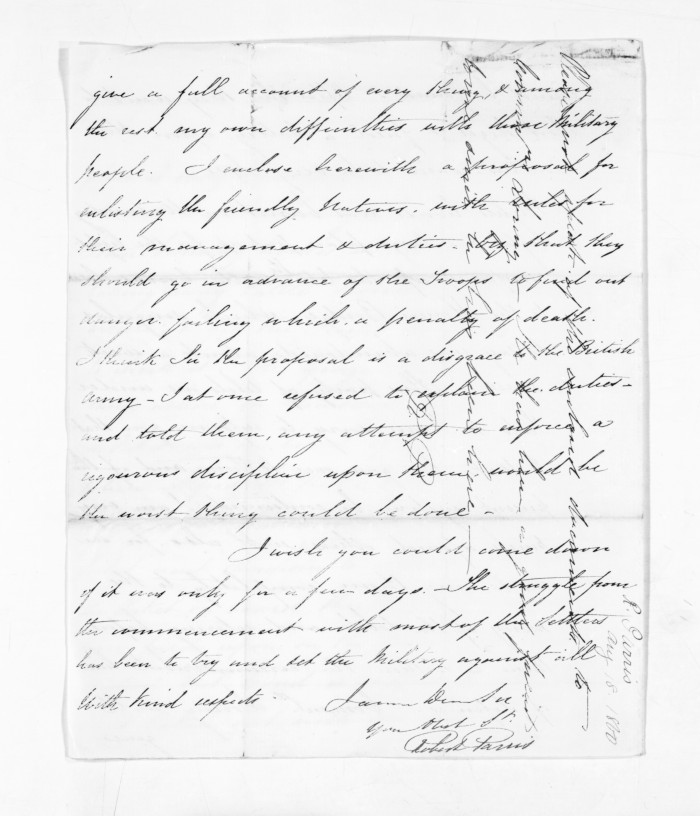 give a full account of every thing, & among
the rest my own difficulties with these Military
people. I enclose herewith a proposal for
enlisting the friendly Natives. with rules for
their management & duties. that they
should go in advance of the Troops to find out
danger. failing which, a penalty of death.
I think Sir the proposal is a disgrace to the British
Army - I at once refused to explain the duties -
and told them, any attempt to enforce a
rigourous discipline upon them would be
the worst thing could be done -
I wish you could come down
if it was only for a few days. - The struggle from
the commencement with most of the Settlers
has been to try and set the Military against all
With kind respects.
I am Dear Sir
Your Obt St.
Robert Parris
Please not the enclosed documents to
R. Parris
Aug 8 1860